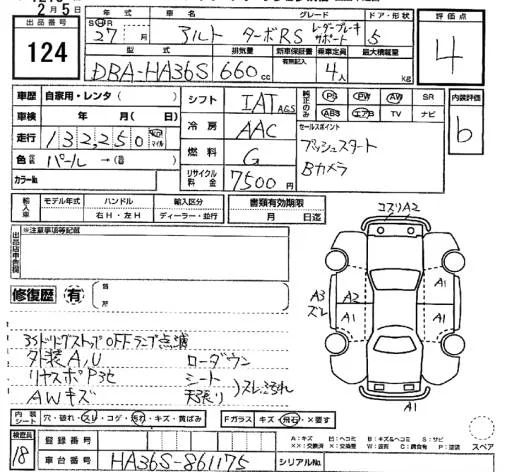 2月5日
出品番号
124
年式
車名
グレード
ドア・形状
評価点
S H R
27 月
アルト
ターボRS
レーダーブレーキ
サポート
5
4
型式
排気量
新車保証書
有無記入
乗車定員
最大積載量
DBA-HA36S
660 cc
4人
kg
車歴
自家用・レンタ( )
シフト
IAT AGS
純正のみ
PS
PW
AW
SR
ABS
エアB
TV
ナビ
内装評価
b
車検
年 月( )
走行
132,250
マイル
冷房
AAC
セールスポイント
プッシュスタート
Bカメラ
色
パール →( )
燃料
G
カラーNo.
リサイクル
料金
7500円
輸入車
モデル年式
ハンドル
右H・左H
輸入区分
ディーラー・並行
書類有効期限
月 日迄
出品店申告欄
※注意事項等記載
修復歴
有
コスリA2
A3
ズレ
A2
A1
A1
A1
A1
外装A,U
ローダウン
リヤスポP3it
シート
AWキズ
内装
シート
穴・破れ・スレ・コゲ・汚れ・キズ・黄ばみ
Fガラス
キズ・飛石・×要す
検査員
18
登録番号
車台番号
HA36S-861175
シリアルNo.
A:キズ
U:ヘコミ
B:キズ&ヘコミ
S:サビ
XX:交換済
X:要交換
W:波
C:腐食
P:塗装
スペア